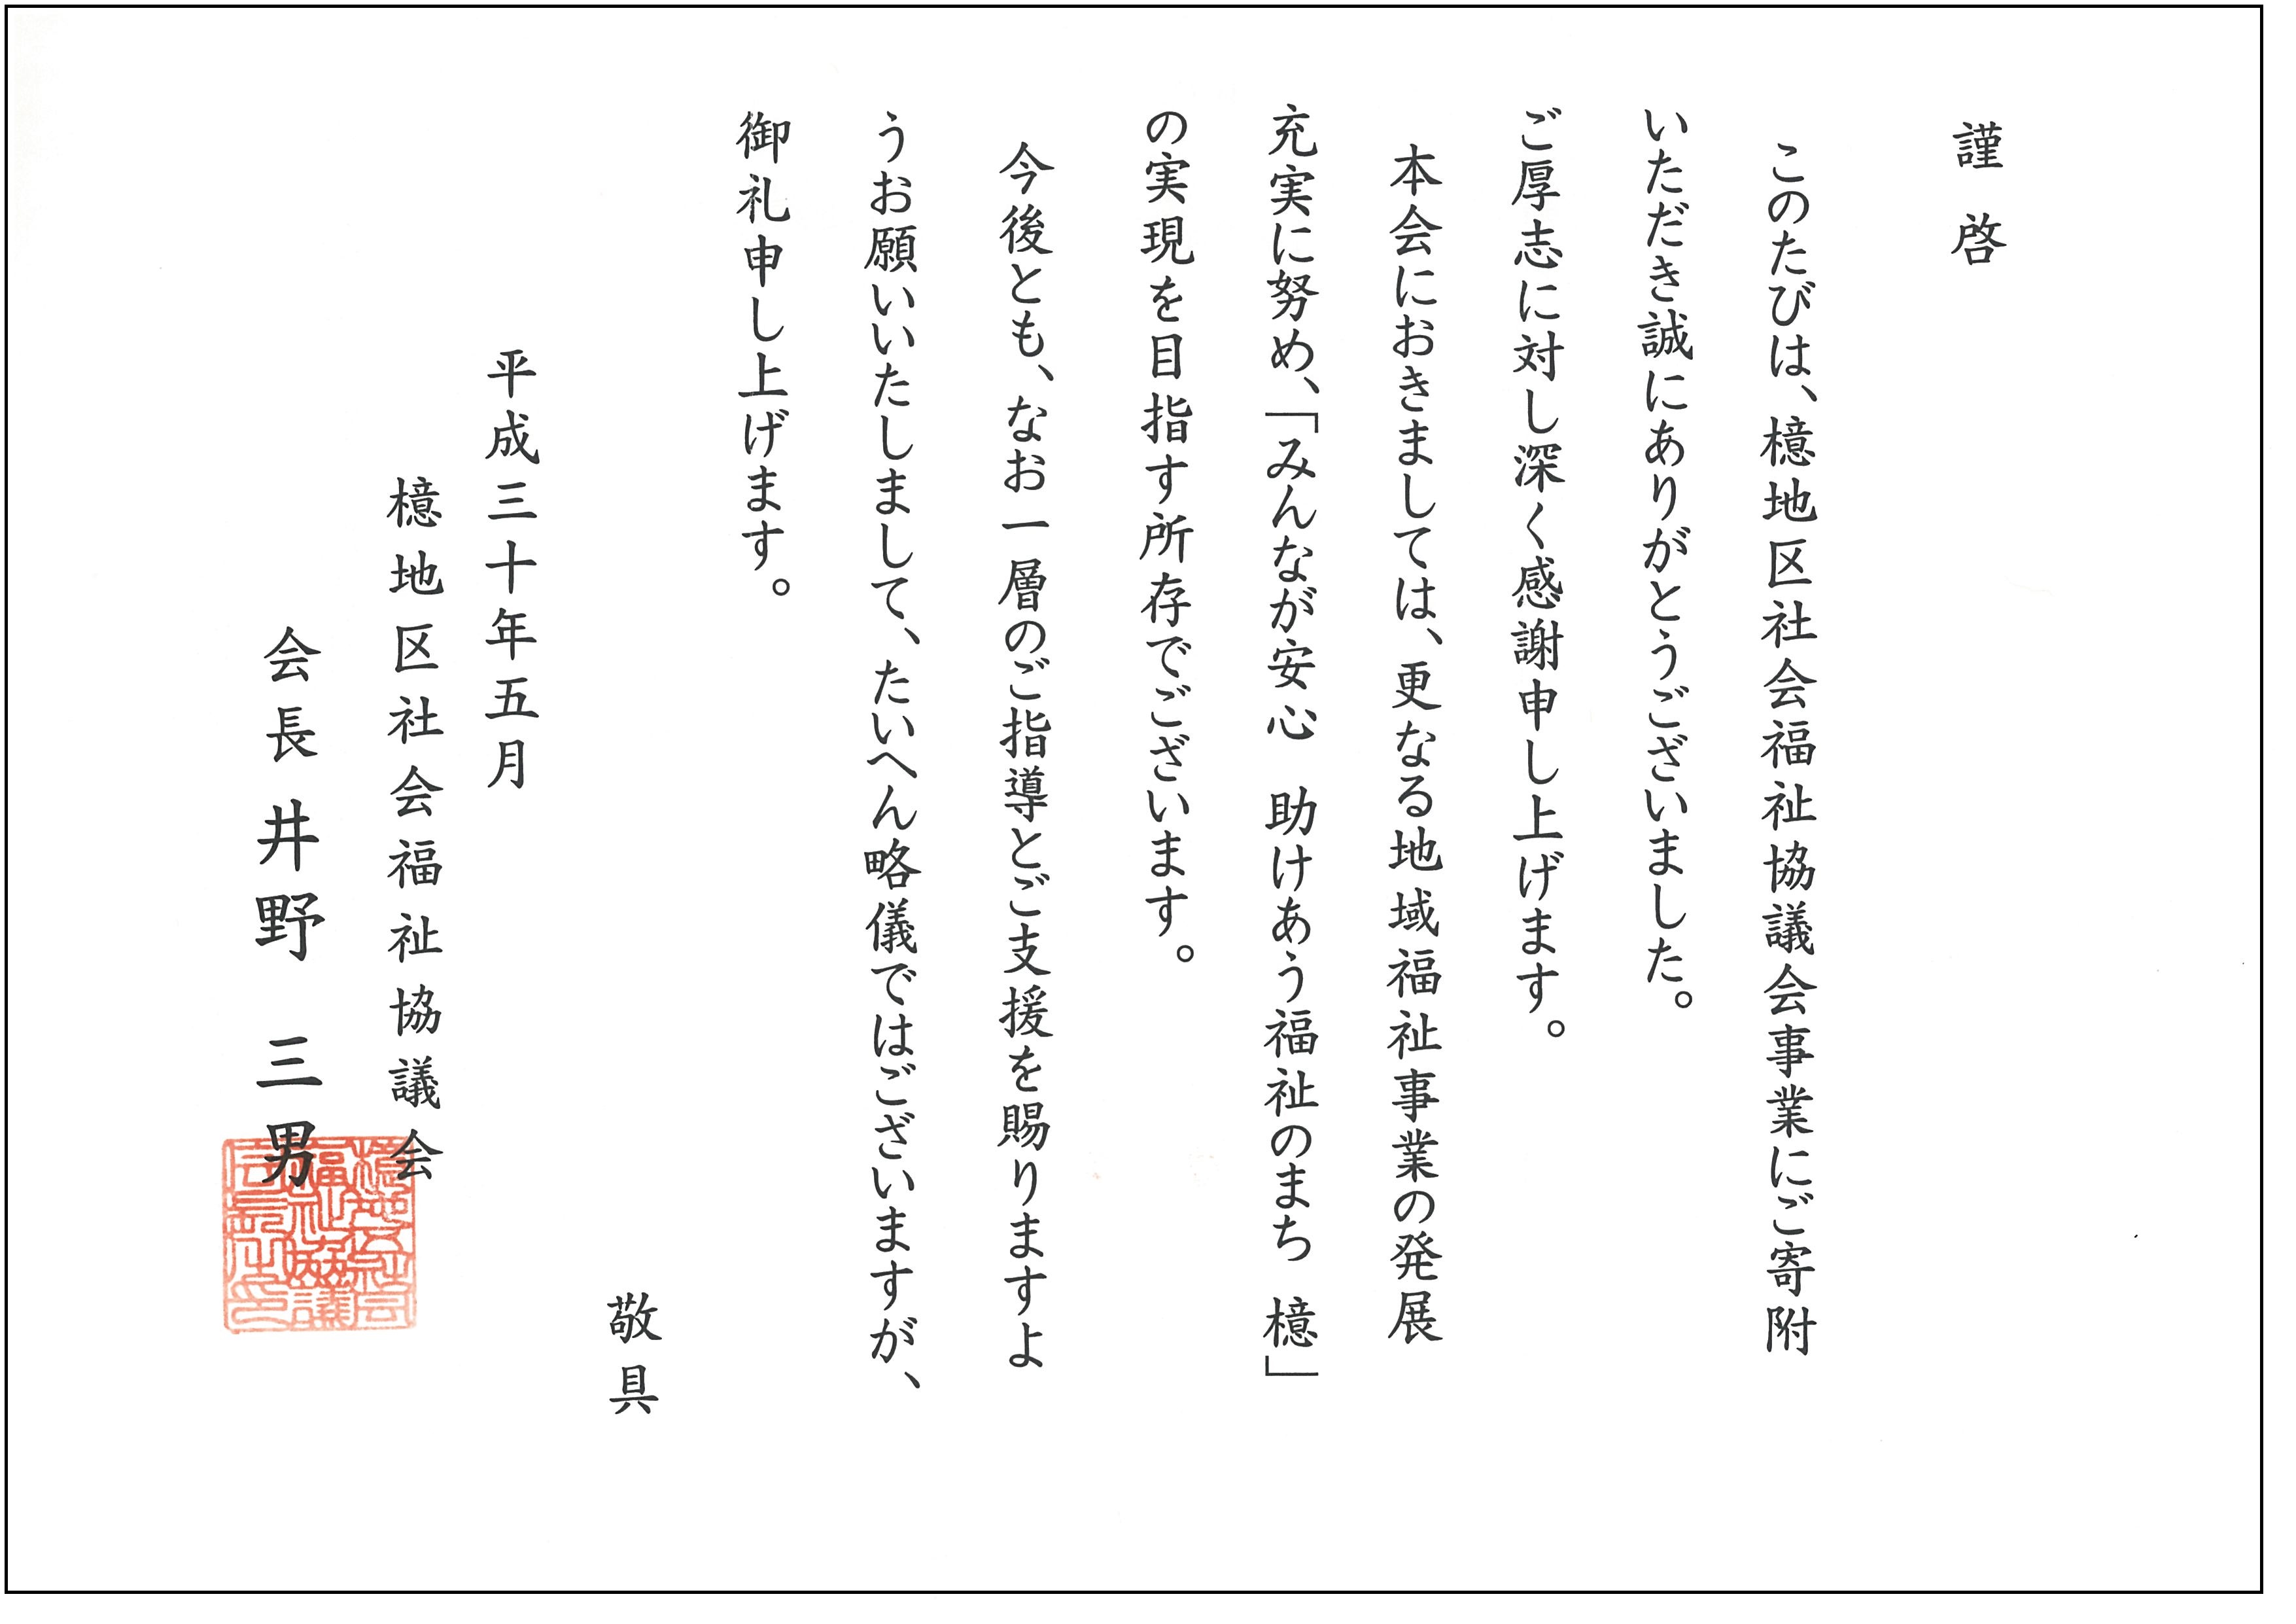 謹啓
このたびは、檍地区社会福祉協議会事業にご寄附
いただき誠にありがとうございました。
ご厚志に対し深く感謝申し上げます。
本会におきましては、更なる地域福祉事業の発展
充実に努め、「みんなが安心　助けあう福祉のまち　檍」
の実現を目指す所存でございます。
今後とも、なお一層のご指導とご支援を賜りますよ
うお願いいたしまして、たいへん略儀ではございますが、
御礼申し上げます。
敬具
平成三十年五月
檍地区社会福祉協議会
会長 井野　三男
檍地区社会
福祉協議
会長之印